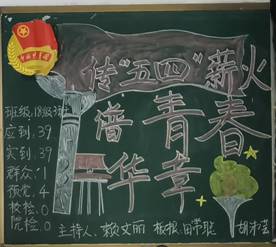 传“五四”薪火
谱青春
华章
班级:18级3班
应到:39
实到:39
群众:1
预党:4
校检:0
院检:0
主持人:赖文丽 板报:田常聪